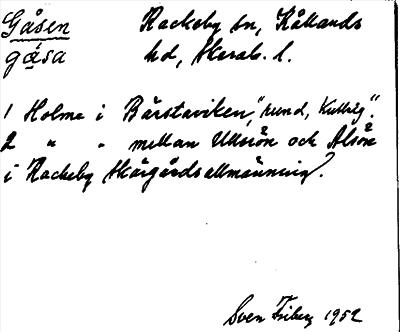 Gåsen Rackeby sn, Kållands
gåsa hd, Skarab. l.
1 Holme i Bärstaviken, "rund, Kullrig".
2 " " mellan Ullsön och Alsön
i Rackeby Skärgårdsallmänning.
Sven Friberg 1952